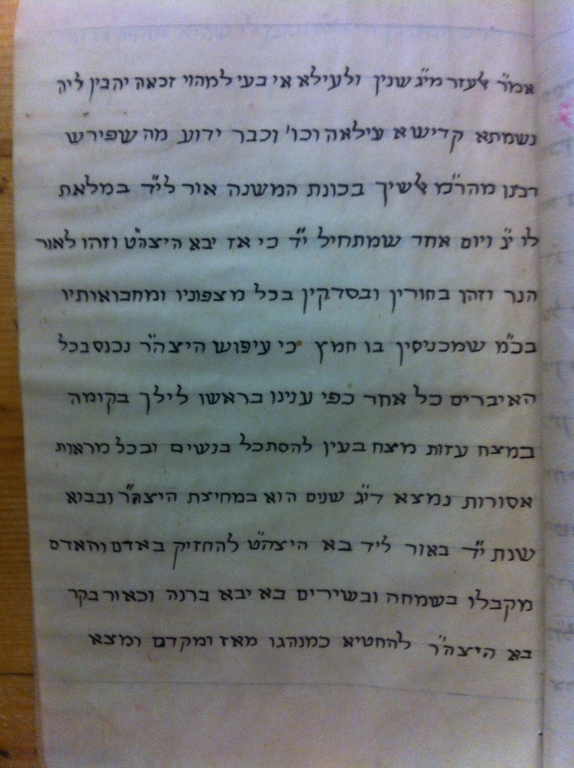 אמ״ר אלעזר מי״ג שנין ולעילא אי בעי למהוי זכאה יהבין ליה
נשמתא קדישא עילאה וכו' וכבר ידוע מה שפירש
רבנן מהר״מ אלשיך בכונת המשנה אור לי״ד במלאת
לו י״ג ויום אחד שמתחיל י״ד כי אז יבא היצה״ט וזהו לאור
הנר וזהן בחורין ובסדקין בכל מצפוניו ומחבואותיו
בכ״מ שמכניסין בו חמץ כי עיפוש היצה״ר נכנס בכל
האיברים כל אחד כפי ענינו בראשו לילך בקומה
במצח עזות מצח בעין להסתכל בנשים ובכל מראות
אסורות נמצא די״ג שנים הוא במחיצת היצה״ר ובבוא
שנת י״ד באור ליד בא היצה״ט להחזיק באדם והאדם
מקבלו בשמחה ובשירים בא יבא ברנה וכאור בקר
בא היצה״ר להחטיא כמנהגו מאז ומקדם ומצא